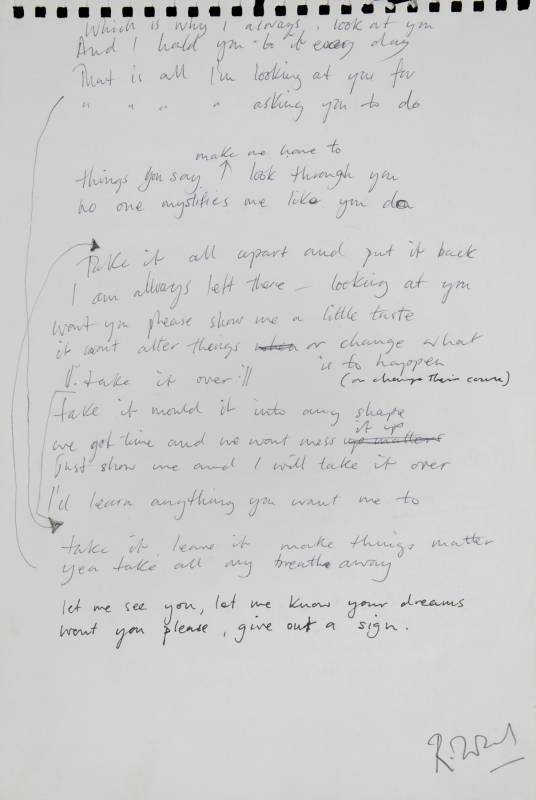 Which is why I always, look at you
And I hold you to it every day
That is all I'm looking at you for
" " " " asking you to do
make me have to
things you say ↑ look through you
no one mystifies me like you do
Take it all apart and put it back
I am always left there - looking at you
wont you please show me a little taste
it wont alter things when or change what
is to happen
||: take it over :||
(or change their course)
take it mould it into any shape
it up
we got time and we wont mess up matters
Just show me and I will take it over
I'd learn anything you want me to
take it leave it make things matter
yea take all my breath away
let me see you, let me know your dreams
wont you please, give out a sign.